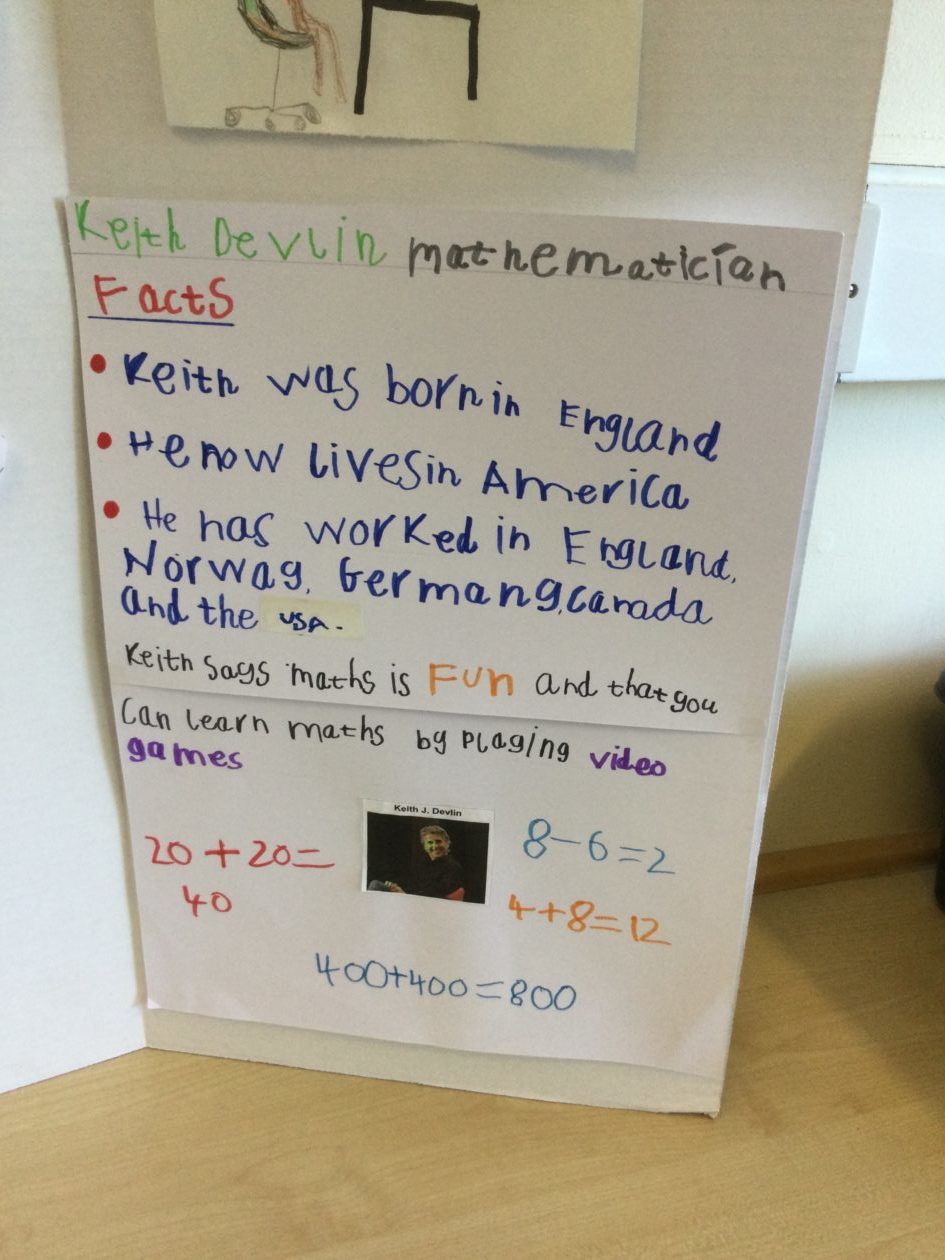 Keith Devlin mathematician
Facts
• Keith was born in England
• He now lives in America
• He has worked in England,
Norway, Germany, Canada
and the USA.
Keith says maths is FUn and that you
Can learn maths by playing video
games
Keith J. Devlin
20+20=
40
8-6=2
4+8=12
400+400=800